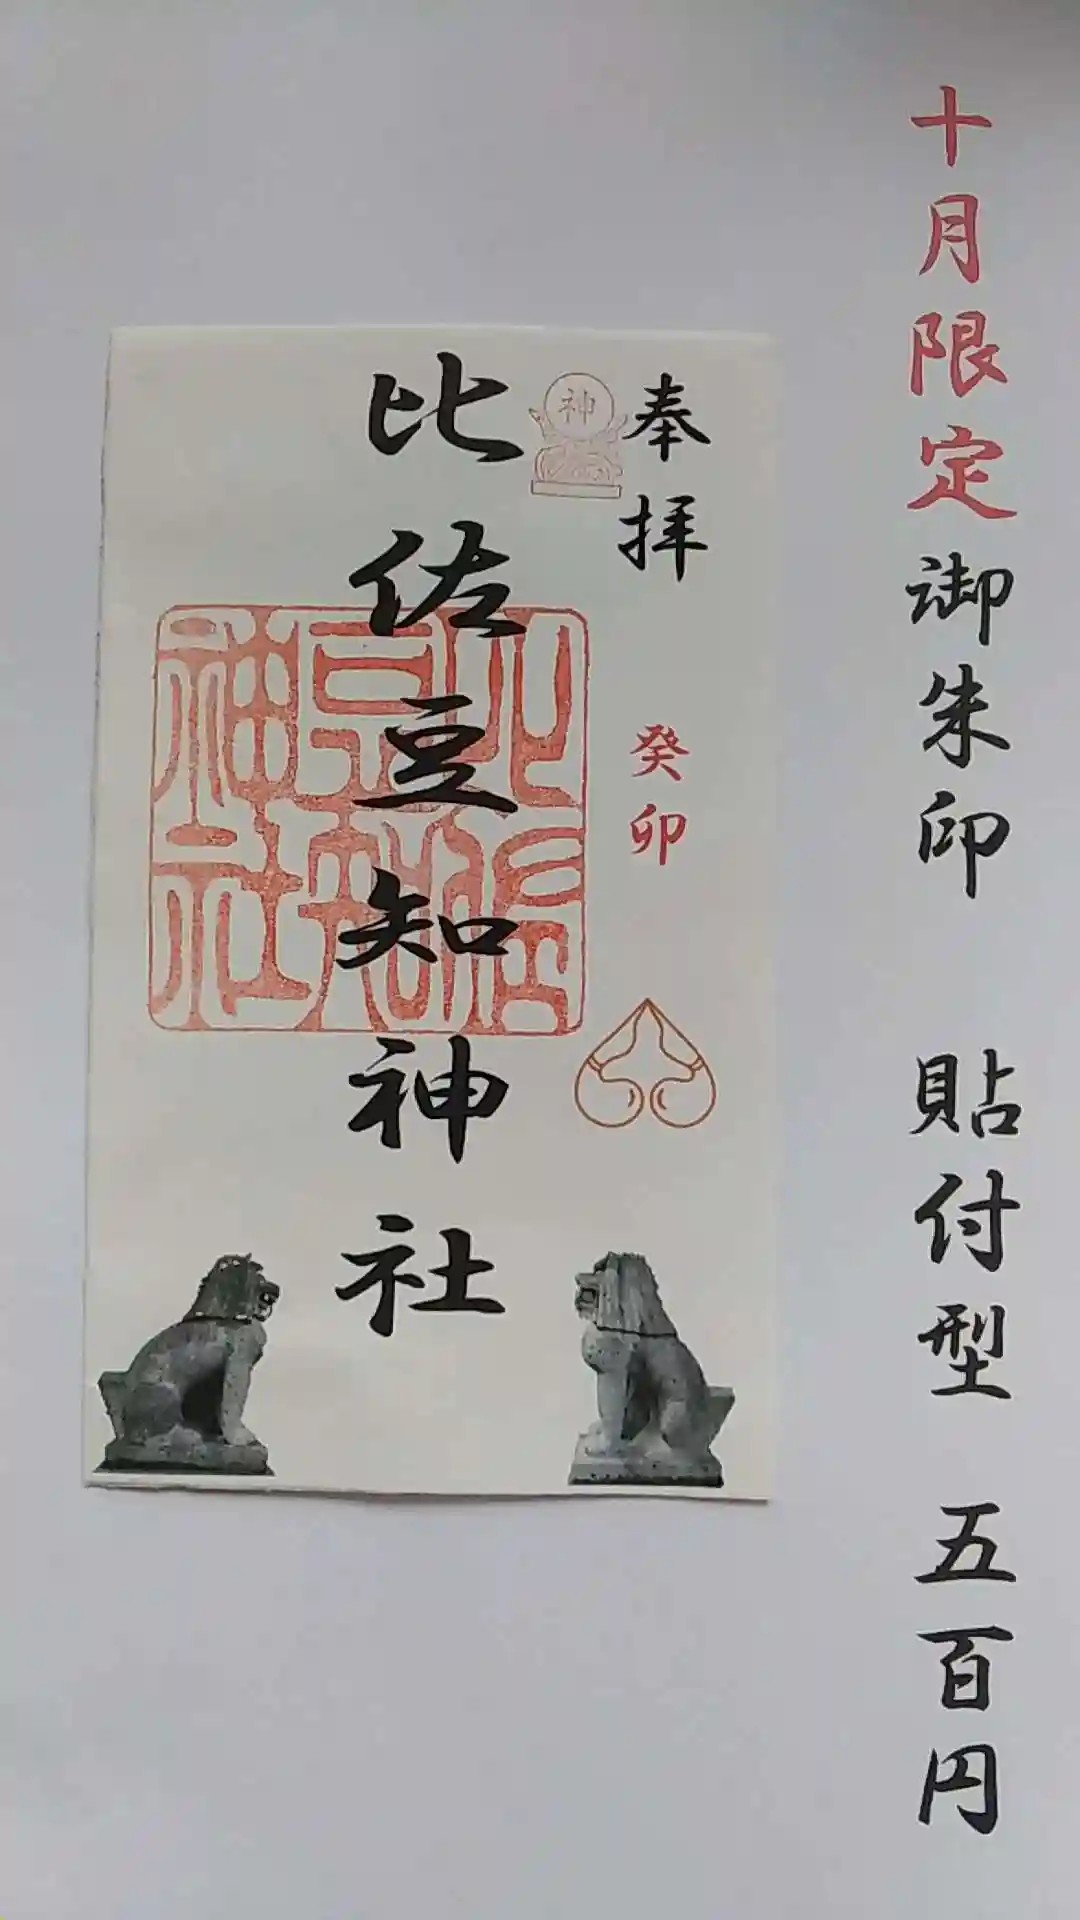 十月限定御朱印 貼付型 五百円
奉拝
癸卯
神
比佐豆知神社
比佐
豆知
神社